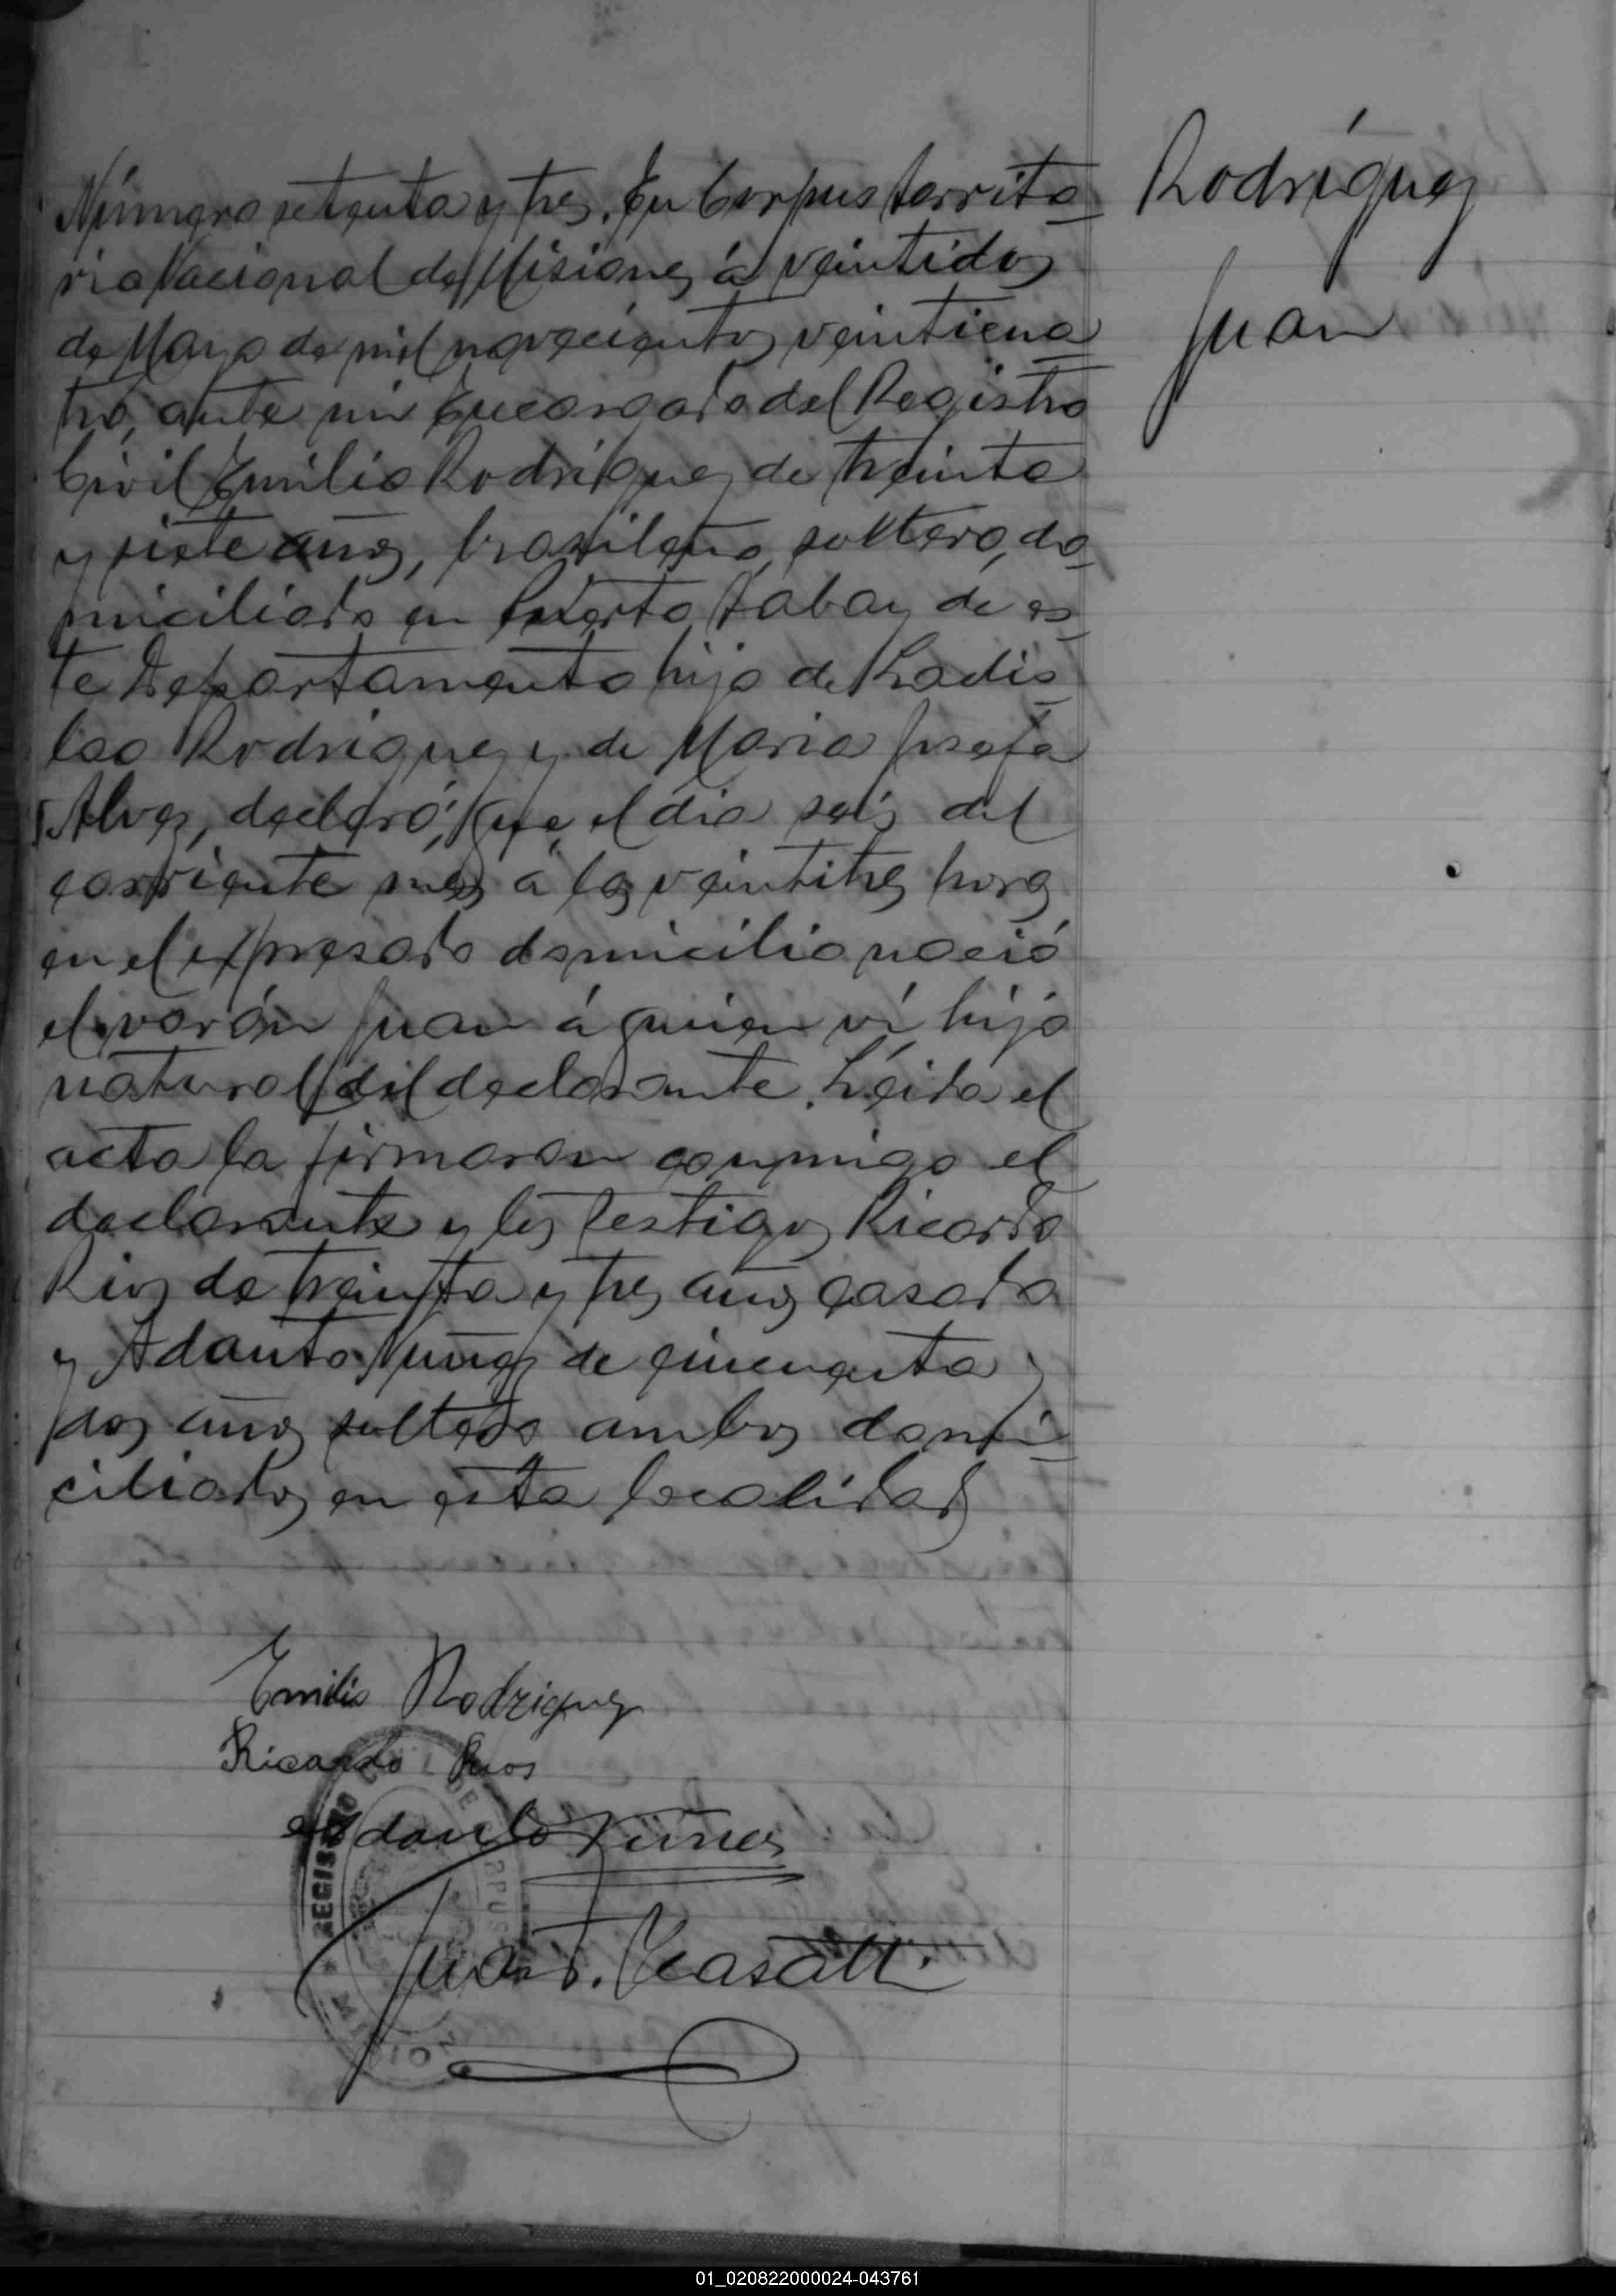 Número setenta y tres. En Corpus Territo-
rio Nacional de Misiones á veintidos
de Mayo de mil novecientos veinticua-
tro, ante mi Encargado del Registro
Civil Emilio Rodríguez de treinta
y siete años, brasileño, soltero, do-
miciliado en Puerto Tabay de es-
te Departamento hijo de Ladis-
lao Rodriguez y de Maria Josefa
Alves, declaró: Que el dia seis del
corriente mes á las veintitres horas
en el expresado domicilio nació
el varón Juan á quien ví hijo
natural del declarante. Leida el
acta la firmaron conmigo el
declarante y los testigos Ricardo
Rios de treinta y tres años casado
y Adauto Nuñes de cincuenta y
dos años soltero ambos domi-
ciliados en esta localidad
Rodríguez
Juan
Emilio Rodriguez
Ricardo Rios
Adauto Nuñes
Juan
REGISTRO
01_020822000024-043761